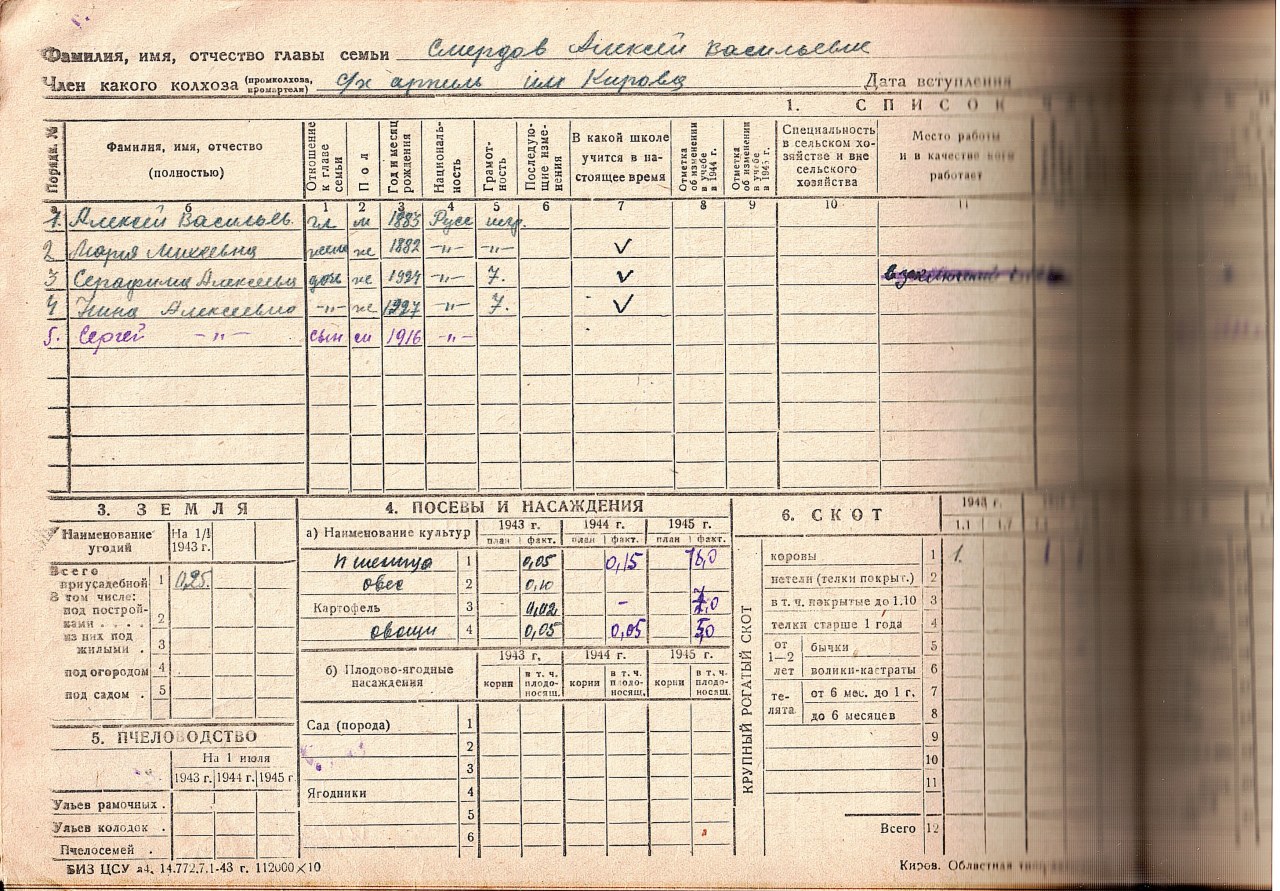 Фамилия, имя, отчество главы семьи Смердов Алексей Васильевич
Член какого колхоза (промколхоза, промартели) с/х артиль им Кирова Дата вступления
1. СПИСОК
Порядк. № Фамилия, имя, отчество (полностью) Отношение к главе семьи Пол Год и месяц рождения Националь-ность Грамот-ность Последую-щие изме-нения В какой школе учится в на-стоящее время Отметка об изменении в учебе в 1944 г. Отметка об изменении в учебе в 1945 г. Специальность в сельском хо-зяйстве и вне сельского хозяйства Место работы и в качестве кого работает
а б 1 2 3 4 5 6 7 8 9 10 11
1. Алексей Васильев. гл м 1883 Русс негр.
2 Мария Михеевна жена ж 1882 -"- -"- ✓
3 Серафима Алексеевн дочь ж 1924 -"- 7. ✓
4 Нина Алексеевна -"- ж 1927 -"- 7. ✓
5. Сергей -"- сын м 1916 -"-
3. ЗЕМЛЯ
Наименование угодий На 1/I 1943 г.
Всего приусадебной 1 0,25
В том числе:
под построй-ками . . . . 2
из них под жилыми . 3
под огородом 4
под садом . 5
5. ПЧЕЛОВОДСТВО
На 1 июля
1943 г. 1944 г. 1945 г.
Ульев рамочных .
Ульев колодок .
Пчелосемей .
4. ПОСЕВЫ И НАСАЖДЕНИЯ
а) Наименование культур 1943 г. 1944 г. 1945 г.
план факт. план факт. план факт.
пшеница 1 0,05 0,15
овес 2 0,10
Картофель 3 0,02 -
овощи 4 0,05 0,05
б) Плодово-ягодные насаждения 1943 г. 1944 г. 1945 г.
корни в т. ч. плодо-носящ. корни в т. ч. плодо-носящ. корни в т. ч. плодо-носящ.
Сад (порода) 1
2
3
Ягодники 4
5
6
6. СКОТ 1943 г.
1.1 1.7
КРУПНЫЙ РОГАТЫЙ СКОТ
коровы 1 1.
нетели (телки покрыт.) 2
в т. ч. покрытые до 1.10 3
телки старше 1 года 4
от 1—2 лет бычки 5
волики-кастраты 6
те-лята от 6 мес. до 1 г. 7
до 6 месяцев 8
9
10
11
Всего 12
БИЗ ЦСУ а4. 14.772.7.1-43 г. 112000×10
Киров. Областная